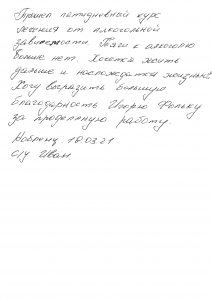 Прошел пятидневный курс
лечения от алкогольной
зависимости. Тяги к алкоголю
больше нет. Хочется жить
дальше и наслождатся жизнью!
Хочу выразить большую
благодарность Игорю Фольку
за проделанную работу.
18.03.21
с/у Иван